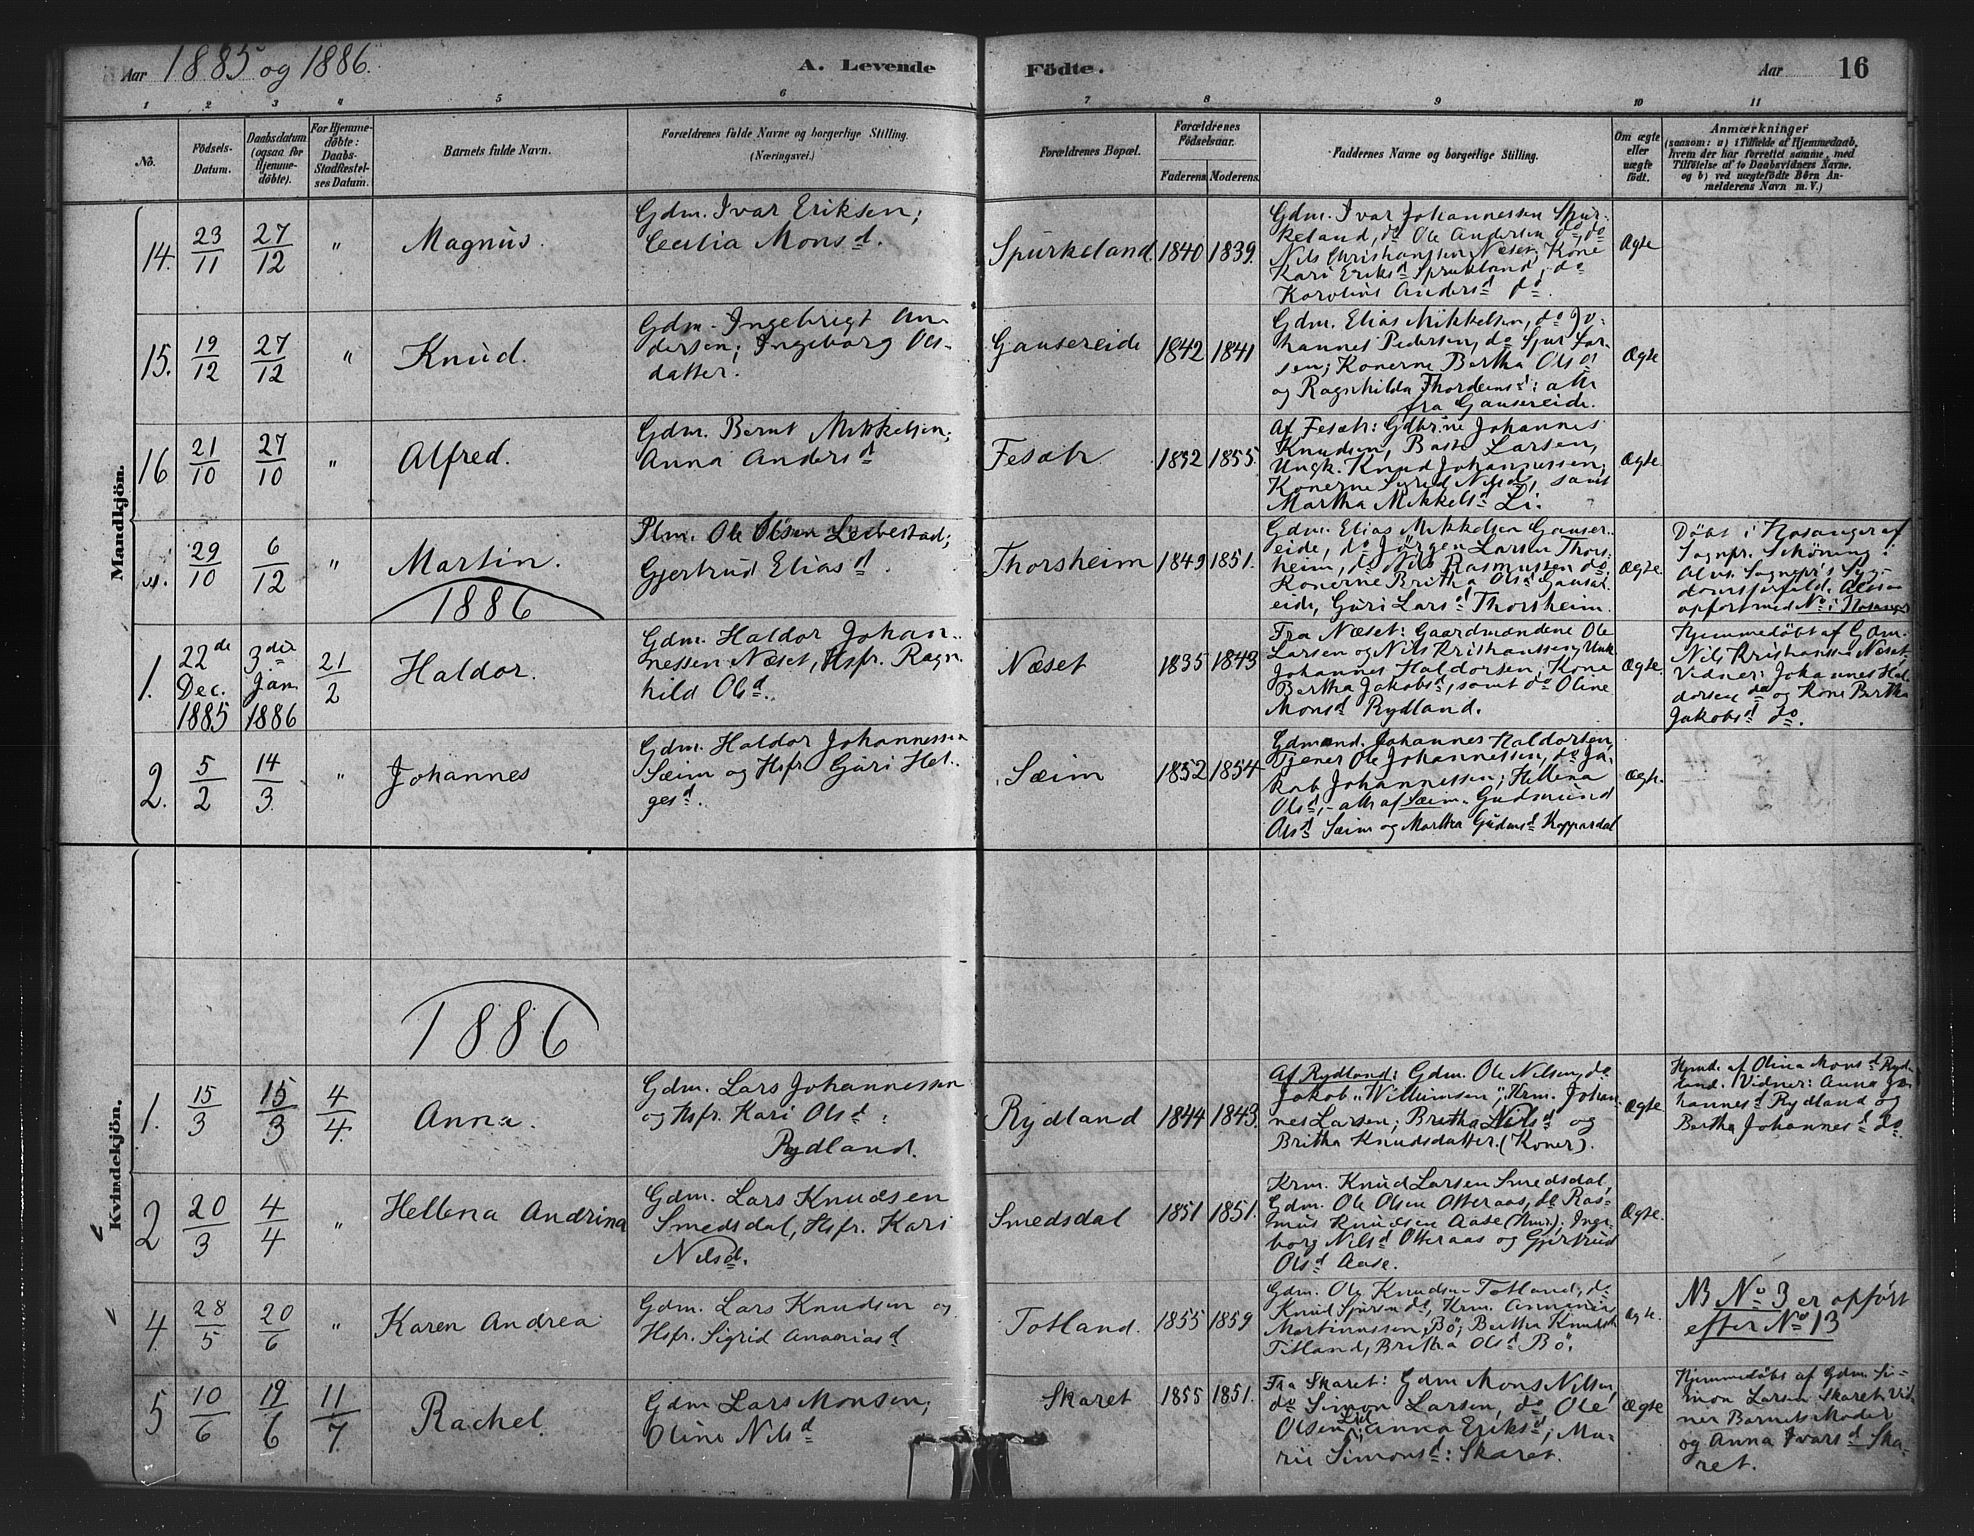 Aar 1885 og 1886.
A. Levende Födte.
Aar 16
1 2 3 4 5 6 7 8 9 10 11
No.
Födsels-Datum.
Daabsdatum (ogsaa for Hjemme-döbte).
For Hjemme-döbte: Daabs-Stadfæstel-ses Datum.
Barnets fulde Navn.
Forældrenes fulde Navne og borgerlige Stilling. (Næringsvei.)
Forældrenes Bopæl.
Forældrenes Födselsaar.
Faderens. Moderens.
Faddernes Navne og borgerlige Stilling.
Om ægte eller uægte født.
Anmærkninger
(saasom: a) i Tilfælde af Hjemmedaab,
hvem der har forrettet samme, med
Tilföielse af to Daabsvidners Navne,
og b) ved uægtefödte Börn An-
melderens Navn m. V.)
Mandkjön.
14. 23/11 27/12 " Magnus.
Gdm. Ivar Eriksen;
Cecilia Monsd.
Spurkeland. 1840 1839.
Gdm. Ivar Johannessen Spur-
keland, do Ole Andersen do, do
Nils Christianssen Næset, Kone
Kari Eriksd Sprukland, do
Karoline Andersd do.
Ægte
15. 19/12 27/12 " Knud.
Gdm. Ingebrigt An-
dersen; Ingeborg Ols-
datter.
Gausereide 1842 1841
Gdm. Elias Mikkelsen, do Jo-
hannes Pedersen, do Sjur Lar-
sen; Konerne Bertha Olsd
og Ragnhilda Thordensd: alle
fra Gausereide.
Ægte
16 21/10 27/10 " Alfred.
Gdm. Bernt Mikkelsen;
Anna Andersd
Fesæt 1852 1855.
Af Fesæt: Gdbrne Johannes
Knudsen, Larsen,
Ungk. Knud Johannessen;
Konerne Sigrid Nilsd, samt
Martha Mikkelsd Li.
Ægte.
29/10 6/12 " Martin.
Plm. Ole Olsen Leivestad;
Gjertrud Eliasd.
Thorsheim 1849 1851.
Gdm. Elias Mikkelsen Gauser-
eide, do Jörgen Larsen Thors-
heim, do Nils Rasmussen do.
Konerne Britha Olsd Gauser-
eide, Guri Larsd Thorsheim.
Ægte.
Döbt i Hosanger af
Sognpr. Schöning i
Alvs. Sognepr's Syg-
domsforfald. Ogsaa
opfört med No i Hosanger
1886
1. 22de Dec. 1885 3die Jan 1886 21/2 Haldor.
Gdm. Haldor Johan-
nessen Næset, Hsfr. Ragn-
hild Olsd.
Næset 1835 1843
Fra Næset: Gaardmændene Ole
Larsen og Nils Kristianssen, Unk
Johannes Haldorsen; Kone
Bertha Jakobsd, samt do Oline
Monsd Rydland.
Ægte.
Hjemmedöbt af Gdm.
Nils Kristianssen Næset.
Vidner: Johannes Hal-
dorsen do og Kone Bertha
Jakobsd do.
2. 5/2 14/3. " Johannes
Gdm. Haldor Johannessen
Sæim og Hsfr Guri Hel-
gesd.
Sæim 1852 1854
Gdmænd. Johannes Haldorsen,
Tjener Ole Johannessen, do Ja-
kob Johannessen; Hellena
Olsd, - alle af Sæim. Gudmund
Olsd Sæim og Martha Gudmsd Koppardal
Ægte.
Kvindekjön.
1886
1. 15/3 15/3 4/4. Anna.
Gdm. Lars Johannessen
og Hsfr. Kari Olsd.
Rydland.
Rydland 1844 1843.
Af Rydland: Gdm. Ole Nilsen, do
Jakob Willumsen; Krm. Johan-
nes Larsen; Britha Nilsd og
Britha Knudsdatter. (Koner).
Ægte.
Hjmd. af Olina Monsd Ryd-
land. Vidner: Anna Jo-
hannesd Rydland og
Bertha Johannesd do.
2 20/3 4/4 " Hellena Andrina
Gdm. Lars Knudsen
Smedsdal, Hsfr. Kari
Nilsd.
Smedsdal 1851 1851.
Krm. Knud Larsen Smedsdal,
Gdm. Ole Olsen Otteraas, do Ras-
mus Knudsen Aase (Krm.); Inge-
borg Nilsd Otteraas og Gjertrud
Olsd Aase.
Ægte.
4. 28/5 20/6 " Karen Andrea
Gdm. Lars Knudsen og
Hsfr. Sigrid Ananiasd
Totland. 1855 1859
Gdm. Ole Knudsen Totland, do
Knud Sjursen do, Krm. Annanias
Martinussen, Bö; Bertha Knudsd
Totland, Britha Olsd Bö.
Ægte.
NB No 3 er opfört
efter No 13
5 10/6 19/6 11/7. Rachel.
Gdm Lars Monsen;
Oline Nilsd
Skaret 1855 1851.
Fra Skaret: Gdm Mons Nilsen,
do Simon Larsen, do Ole
Olsen Lid, Anna Eriksd, Ma-
rie Simonsd: Skaret.
Ægte
Hjemmedöbt af Gdm. Si-
mon Larsen Skaret. Vid-
ner Barnets Moder
og Anna Ivarsd Ska-
ret.